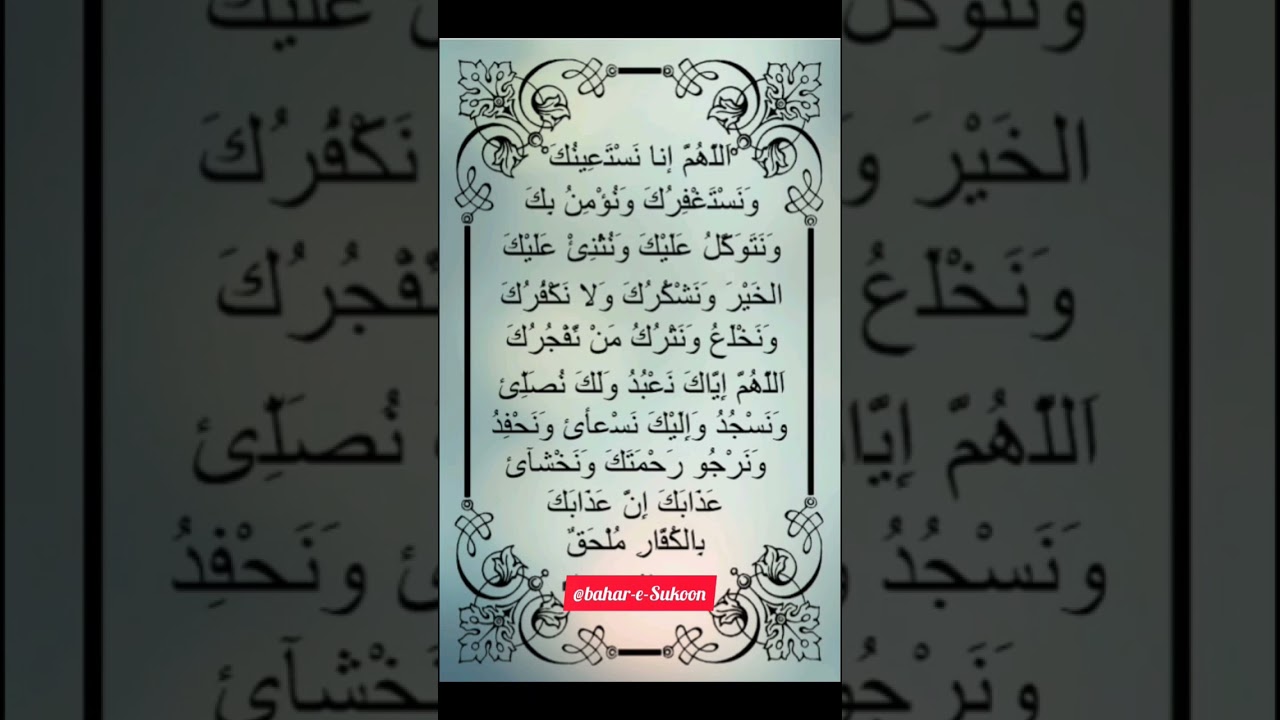 اَللّٰهُمَّ إنا نَسْتَعِينُكَ
وَنَسْتَغْفِرُكَ وَنُؤْمِنُ بكَ
وَنَتَوَكَّلُ عَلَيْكَ وَنُثْنِئْ عَلَيْكَ
الخَيْرَ وَنَشْكُرُكَ وَلا نَكْفُرُكَ
وَنَخْلَعُ وَنَتْرُكُ مَنْ يَّفْجُرُكَ
اَللّٰهُمَّ إِيَّاكَ نَعْبُدُ وَلَكَ نُصَلِّئ
وَنَسْجُدُ وَإِلَيْكَ نَسْعأئ وَنَحْفِدُ
وَنَرْجُو رَحْمَتَكَ وَنَخْشآئ
عَذَابَكَ إِنَّ عَذَابَكَ
بِالكُفَّارِ مُلْحَقٌ
@bahar-e-Sukoon